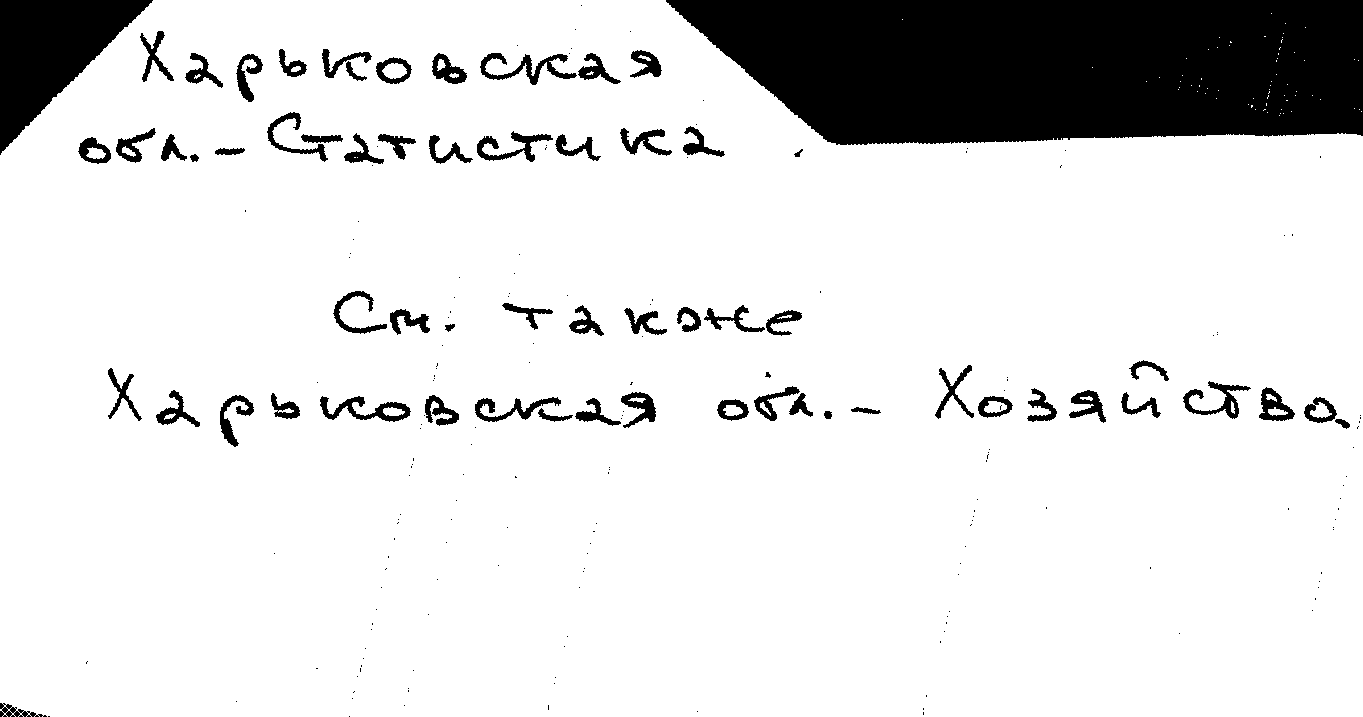 Харьковская
обл. - Статистика.
См. также
Харьковская обл. - Хозяйство.